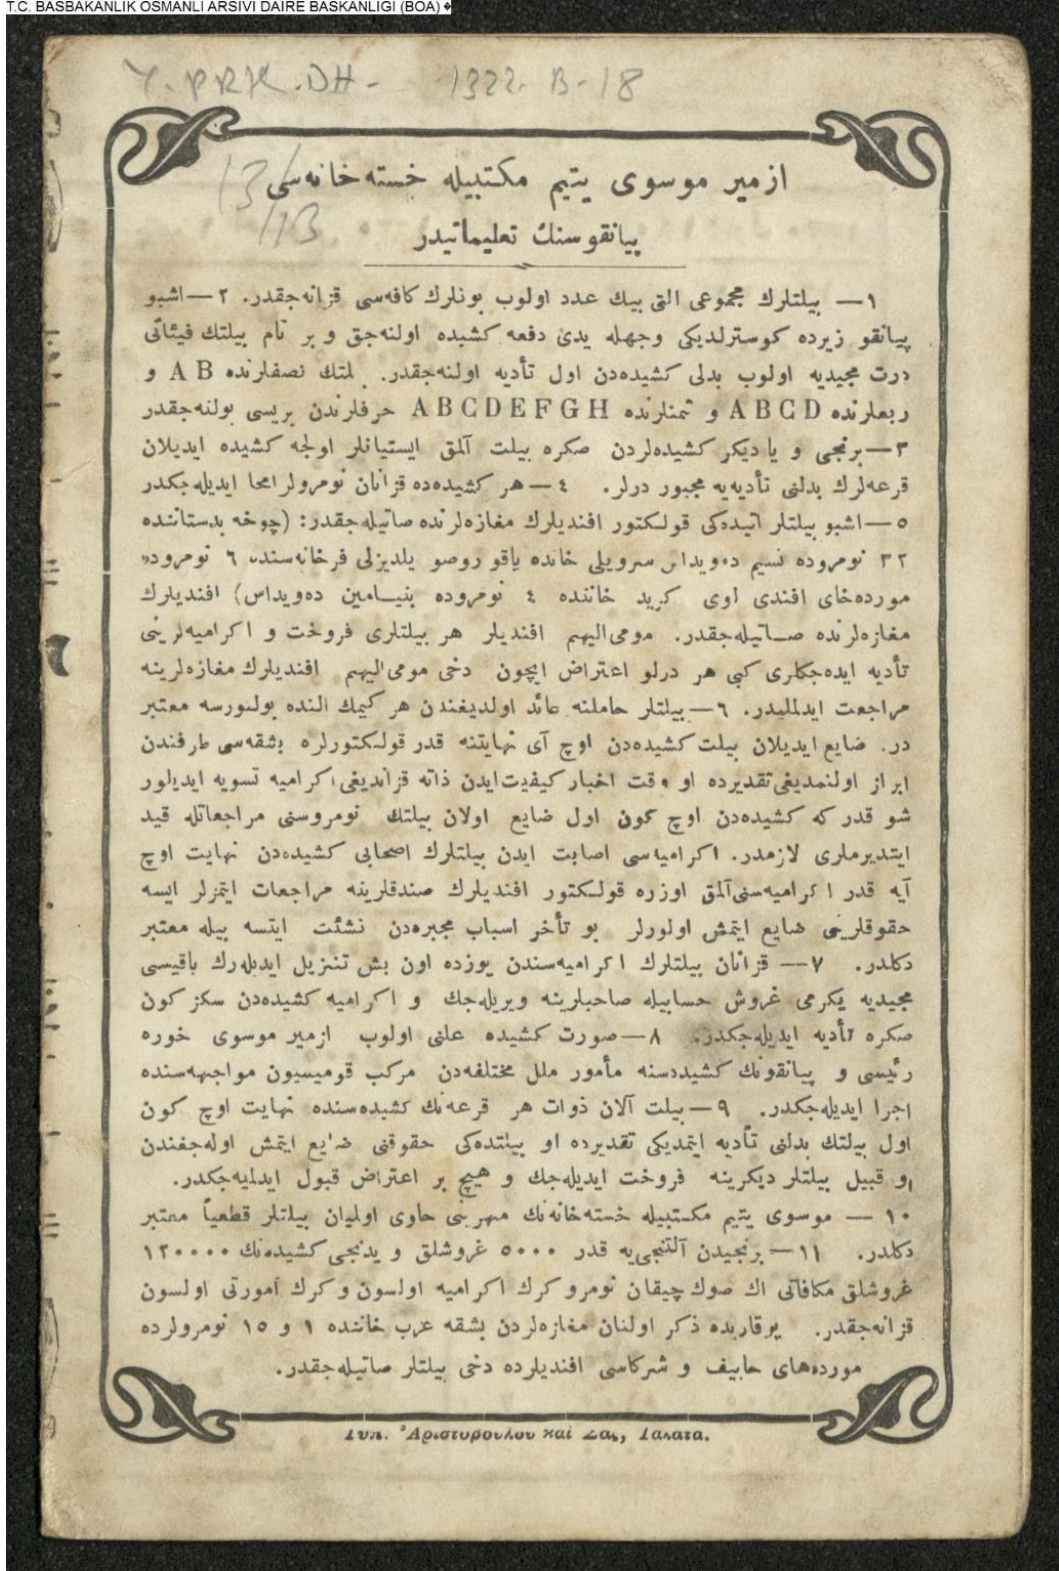 T.C. BASBAKANLIK OSMANLI ARSIVI DAIRE BASKANLIGI (BOA)
Y. PRK. DH - 1322. B - 18
13/
113
ازمير موسوى يتيم مكتبيله خسته‌خانه‌سى
پيانقوسنك تعليماتيدر
١ — بيلتلرك مجموعى التى بيك عدد اولوب بونلرك كافه‌سى قزانه‌جقدر. ٢ — اشبو
پيانقو زيرده كوسترلديكى وجهله يدى دفعه كشيده اولنه‌جق و بر تام بيلتك فيئاتى
درت مجيديه اولوب بدلى كشيده‌دن اول تأديه اولنه‌جقدر. لتك نصفلرنده A B و
ربعلرنده A B C D و ثمنلرنده A B C D E F G H حرفلرندن بريسى بولنه‌جقدر
٣ — برنجى و يا ديكر كشيده‌لردن صكره بيلت آلمق ايستيانلر اولجه كشيده ايديلان
قرعه‌لرك بدلنى تأديه‌يه مجبور درلر. ٤ — هر كشيده‌ده قزانان نومرولر امحا ايديله‌جكدر
٥ — اشبو بيلتلر آتيده‌كى قولكتور افنديلرك مغازه‌لرنده صاتيله‌جقدر: (چوخه بدستاننده
٣٢ نومروده نسيم ده‌ويداس سرويلى خانده ياقو روصو يلديزلى فرخانه‌سنده ٦ نومروده
مورده‌خاى افندى اوى كريد خاننده ٤ نومروده بنيامين ده‌ويداس) افنديلرك
مغازه‌لرنده صاتيله‌جقدر. مومى‌اليهم افنديلر هر بيلتلرى فروخت و اكراميه‌لرينى
تأديه ايده‌جكلرى كبى هر درلو اعتراض ايچون دخى مومى‌اليهم افنديلرك مغازه‌لرينه
مراجعت ايدلمليدر. ٦ — بيلتلر حاملنه عائد اولديغندن هر كيمك النده بولنورسه معتبر
در. ضايع ايديلان بيلت كشيده‌دن اوچ آى نهايتنه قدر قولكتورلره بشقه‌سى طرفندن
ابراز اولنمديغى تقديرده او وقت اخبار كيفيت ايدن ذاته قزانديغى اكراميه تسويه ايديلور
شو قدر كه كشيده‌دن اوچ كون اول ضايع اولان بيلتك نومروسنى مراجعاتله قيد
ايتديرملرى لازمدر. اكراميه‌سى اصابت ايدن بيلتلرك اصحابى كشيده‌دن نهايت اوچ
آيه قدر اكراميه‌سنى آلمق اوزره قولكتور افنديلرك صندقلرينه مراجعات ايتمزلر ايسه
حقوقلرينى ضايع ايتمش اولورلر بو تأخر اسباب مجبره‌دن نشئت ايتسه بيله معتبر
دكلدر. ٧ — قزانان بيلتلرك اكراميه‌سندن يوزده اون بش تنزيل ايديله‌رك باقيسى
مجيديه يكرمى غروش حسابيله صاحبلرينه ويريله‌جك و اكراميه كشيده‌دن سكز كون
صكره تأديه ايديله‌جكدر. ٨ — صورت كشيده علنى اولوب ازمير موسوى خوره
رئيسى و پيانقونك كشيده‌سنه مأمور ملل مختلفه‌دن مركب قوميسيون مواجهه‌سنده
اجرا ايديله‌جكدر. ٩ — بيلت آلان ذوات هر قرعه‌نك كشيده‌سنده نهايت اوچ كون
اول بيلتك بدلنى تأديه ايتمديكى تقديرده او بيلتده‌كى حقوقنى ضايع ايتمش اوله‌جغندن
او قبيل بيلتلر ديكرينه فروخت ايديله‌جك و هيچ بر اعتراض قبول ايدلميه‌جكدر.
١٠ — موسوى يتيم مكتبيله خسته‌خانه‌نك مهرينى حاوى اوليان بيلتلر قطعياً معتبر
دكلدر. ١١ — برنجيدن آلتنجى‌يه قدر ٥٠٠٠ غروشلق و يدنجى كشيده‌نك ١٢٠٠٠٠
غروشلق مكافاتى اك صوك چيقان نومرو كرك اكراميه اولسون و كرك آمورتى اولسون
قزانه‌جقدر. يوقاريده ذكر اولنان مغازه‌لردن بشقه عرب خاننده ١ و ١٥ نومرولرده
مورده‌هاى حابيف و شركاسى افنديلرده دخى بيلتلر صاتيله‌جقدر.
Τυπ. Ἀριστοβούλου καὶ Σας, Γαλατα.